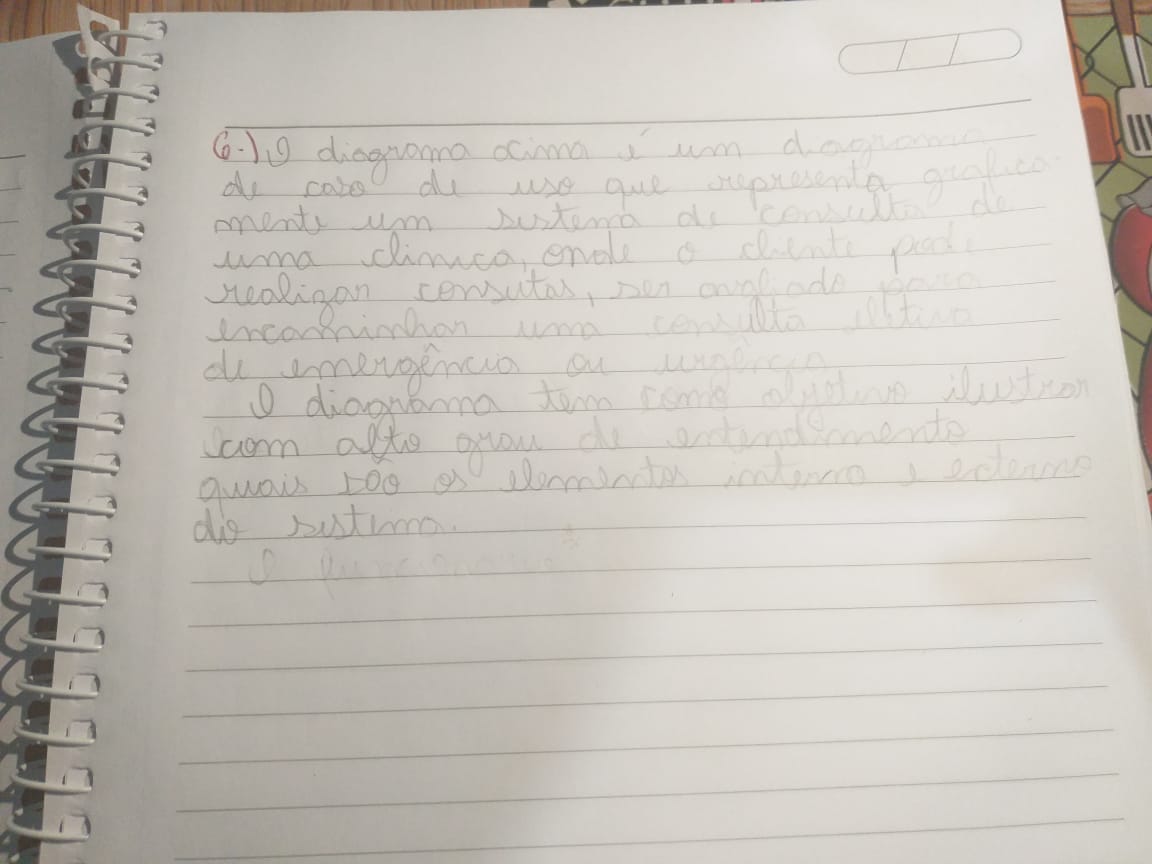 6-) O diagrama acima é um diagrama
de caso de uso que representa grafica-
mente um sistema de consulta de
uma clinica, onde o cliente pode
realizar consutas, ser avaliado para
encaminhar uma consulta eletiva
de emergência ou urgência
O diagrama tem como objetivo ilustrar
com alto grau de entendimento
quais são os elementos interno e externo
do sistema.
O